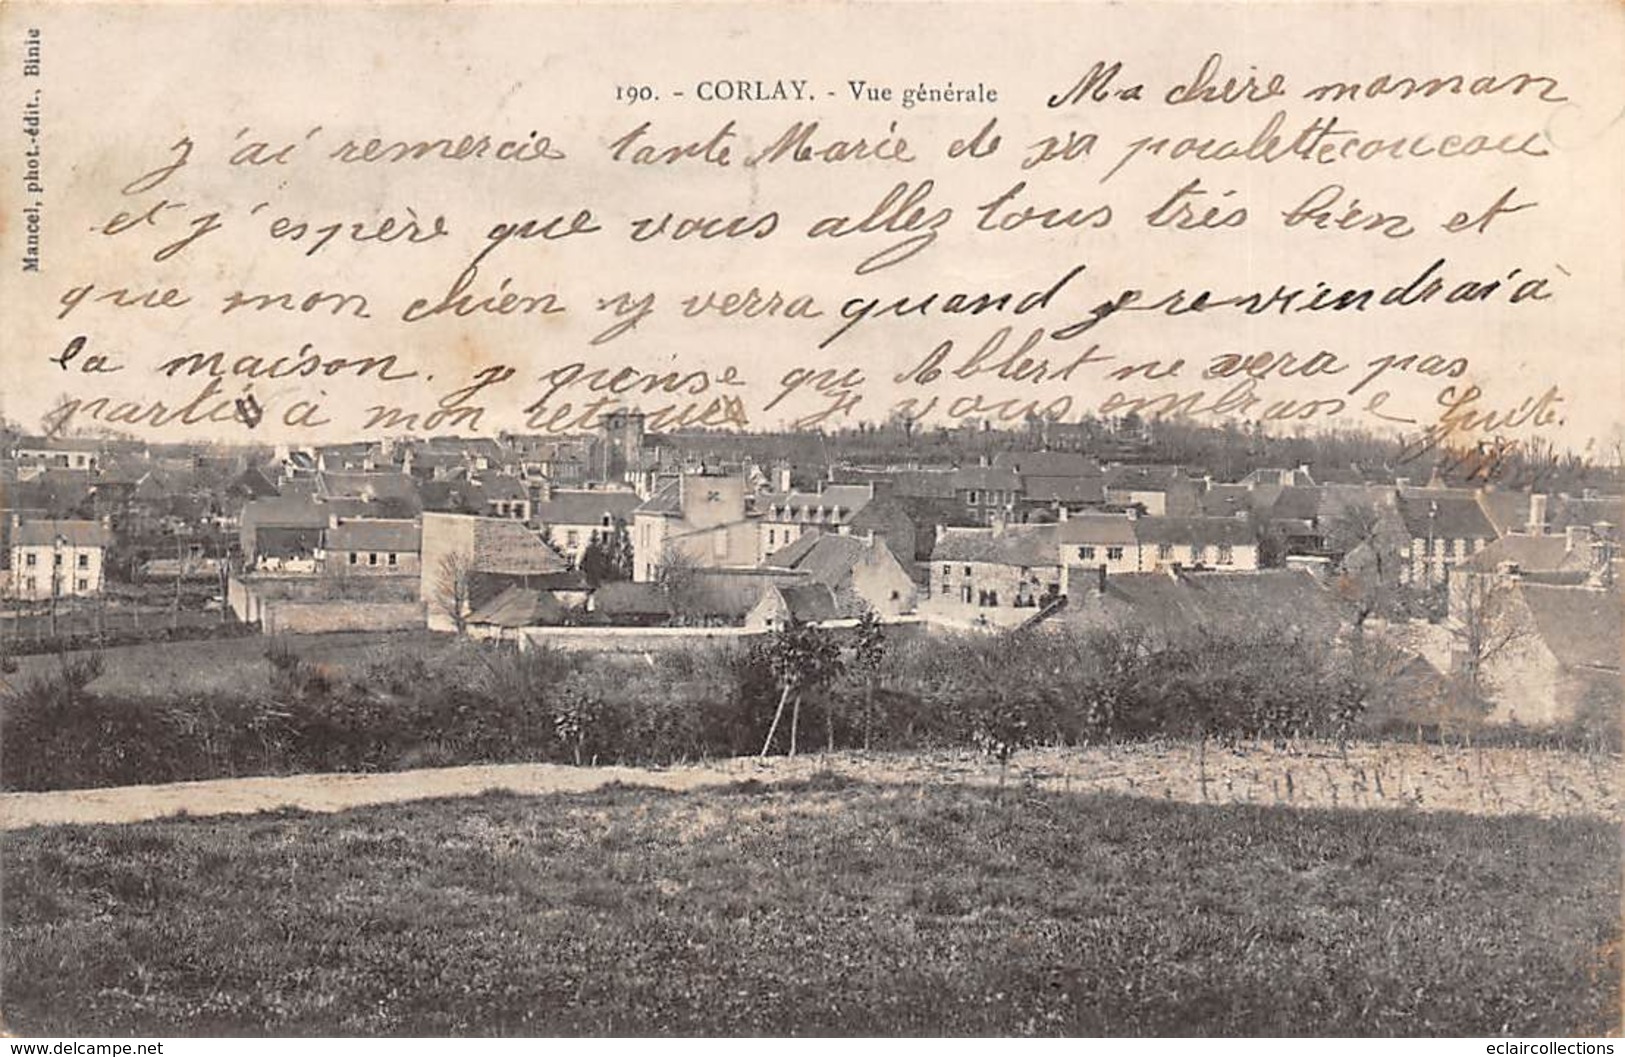 Mancel, phot.-édit., Binic
190. - CORLAY. - Vue générale
Ma chère maman
j'ai remercie tante Marie de sa poulette coucou
et j'espère que vous allez tous très bien et
que mon chien y verra quand je reviendrai à
la maison. je pense qu Ablert ne sera pas
partie à mon retoue je vous embrasse
www.delcampe.net
eclaircollections